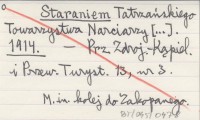 Staraniem Tatrzańskiego
Towarzystwa Narciarzy [...].
1914. — Prz. Zdroj.-Kąpiel.
i Przew. Turyst. 13, nr 3.
M. in. kolej do Zakopanego.